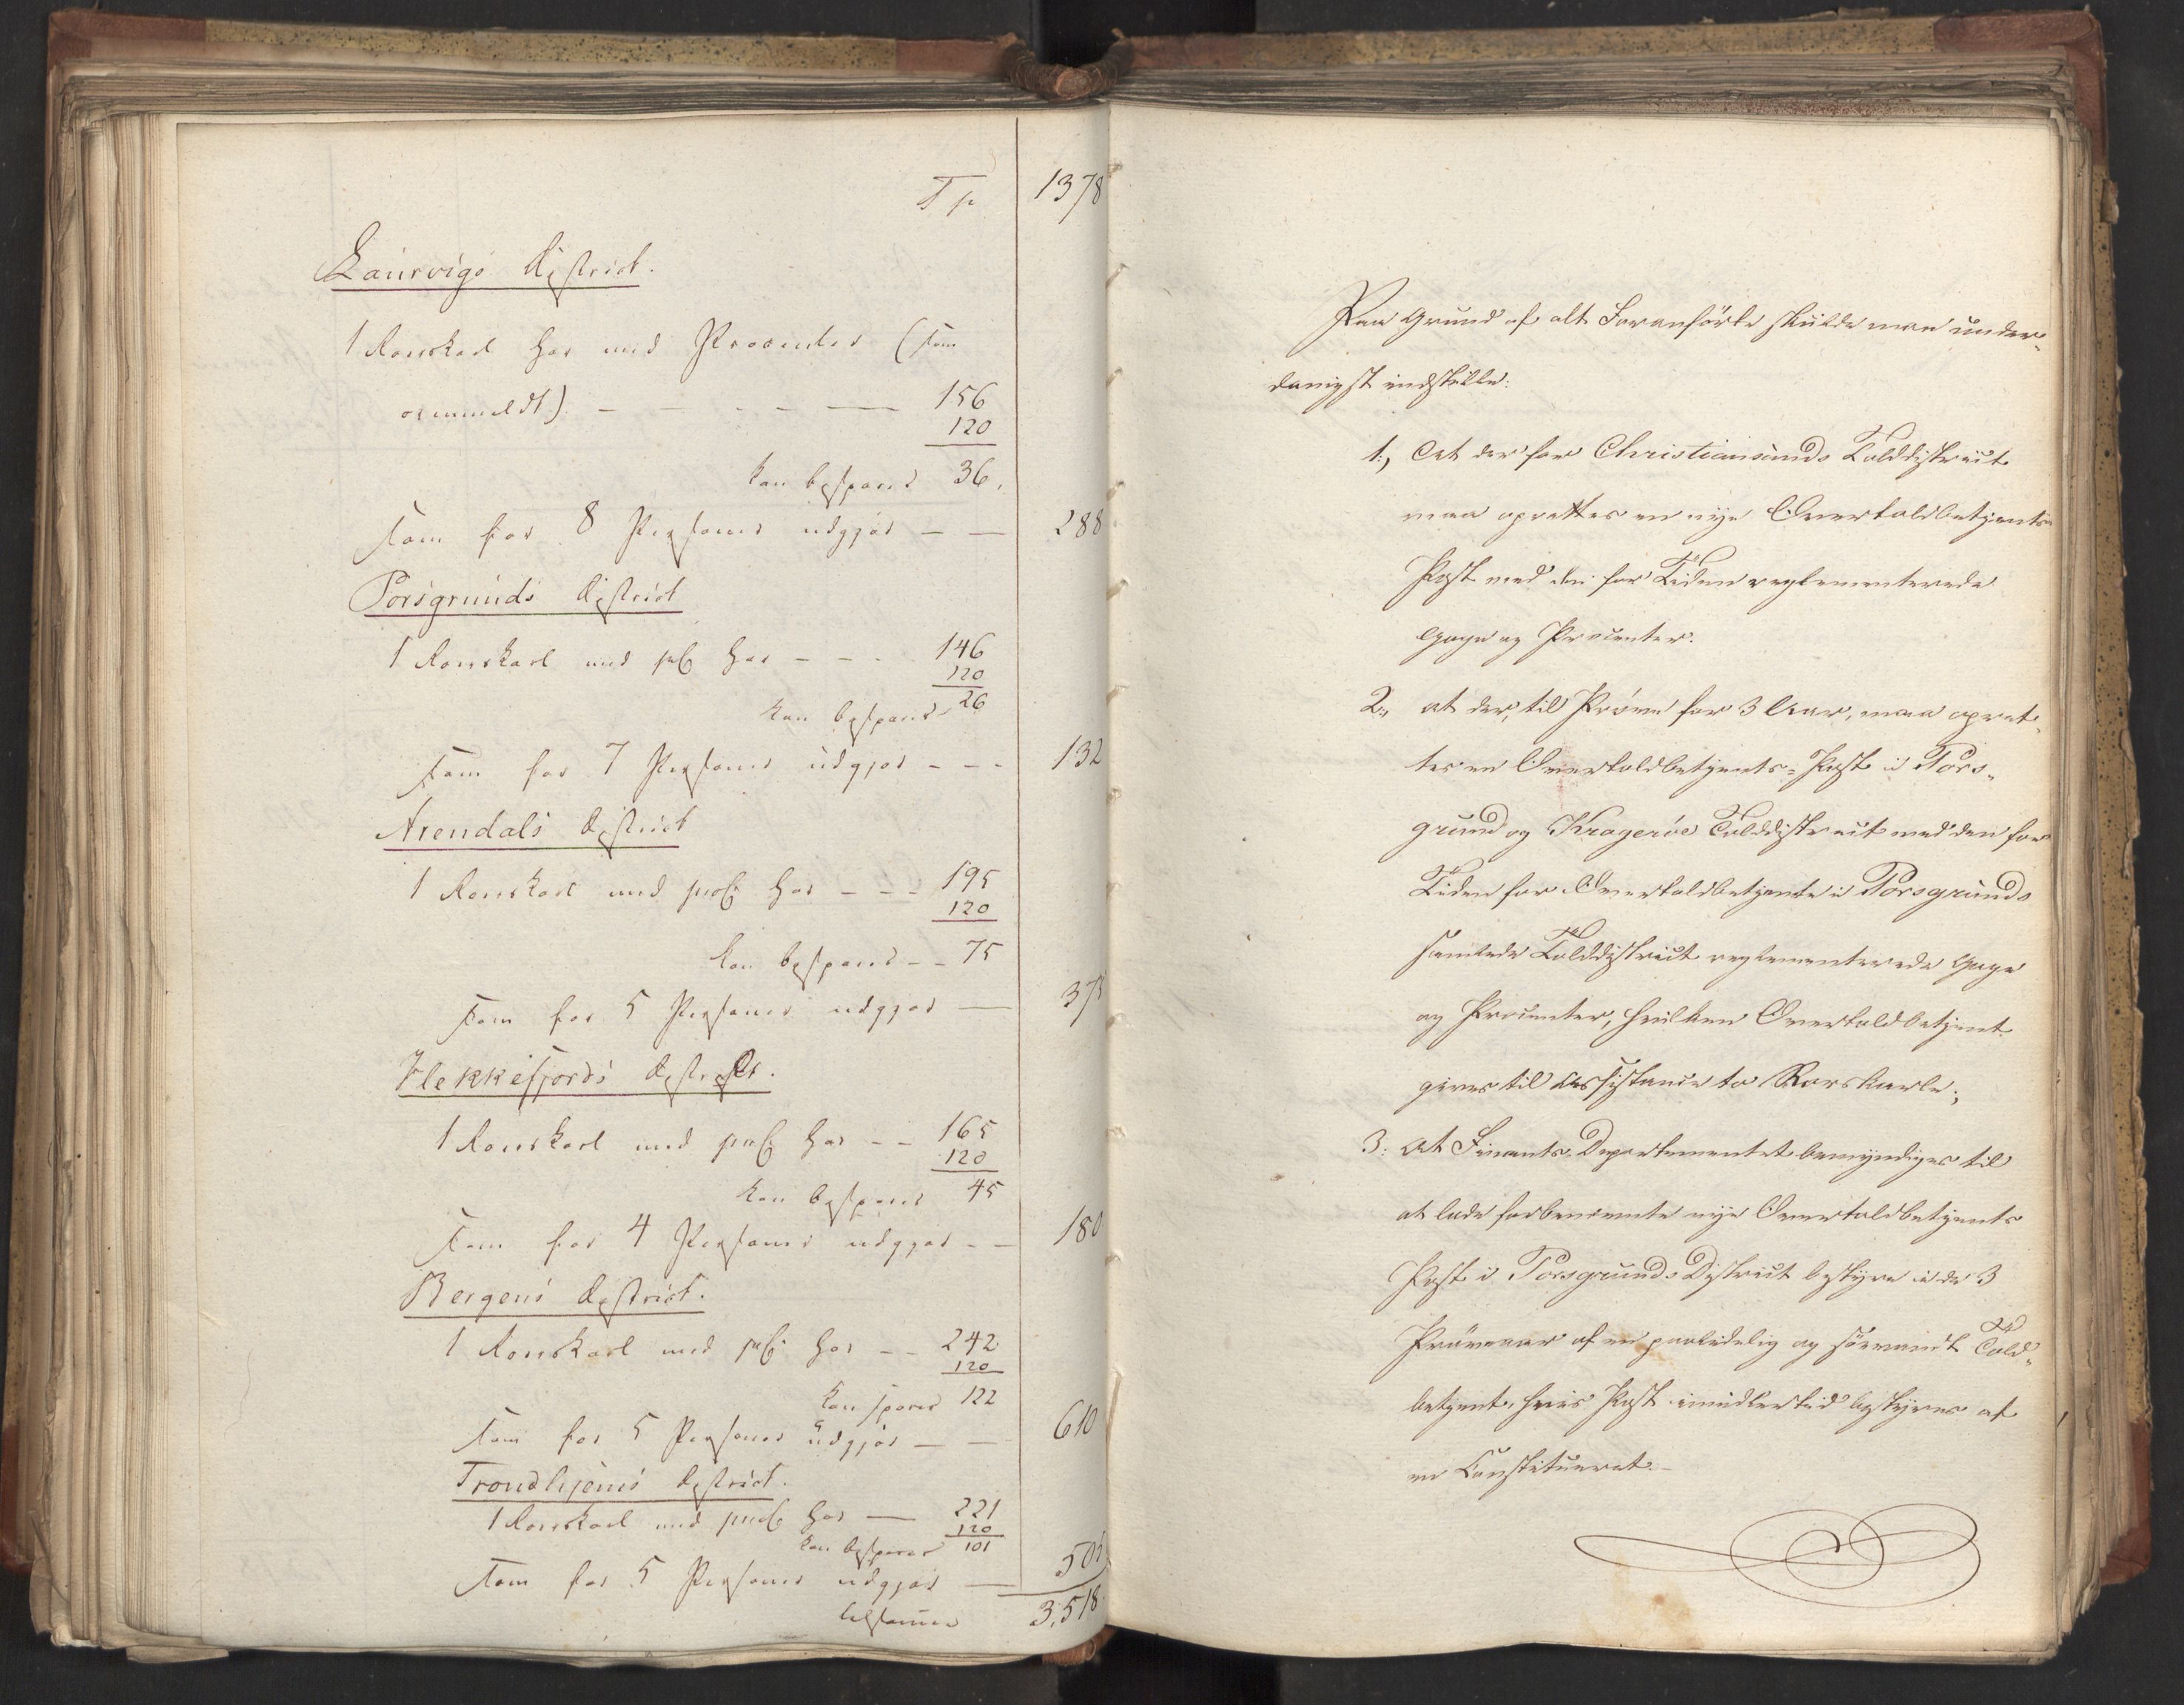 Tp 1378
Laurvigs District.
1 Rorskarl har med Procenter (som
anmeldt) — — - - — 156
120
kan bespares 36.
som for 8 Personer udgjør — — 288
Porsgrunds District
1 Rorskarl med pC har - - - 146
120
kan bespares 26
som for 7 Personer udgjør - - - 132
Arendals District
1 Rorskarl med proC har - - - 195
120
kan bespares - - 75
som for 5 Personer udgjør — 375
Flekkefjords District.
1 Rorskarl med proC har - - 165
120
kan bespares 45
som for 4 Personer udgjør - — 180
Bergens District.
1 Rorskarl med pC har - - 242
120
kan spares 122
som for 5 Personer udgjør — — 610
Trondhjems District.
1 Rorskarl med proC har — 221
120
kan bespares 101
som for 5 Personer udgjør — 505
tilsammen 3,518.
Paa Grund af alt Foranførte skulde man under-
danigst indstille:
1., At der for Christiansunds Tolddistrict
maa oprettes en nye Overtoldbetjents
Post med den for Tiden reglementerede
Gage og Procenter.
2., at der, til Prøve for 3 Aar, maa opret-
tes en Overtoldbetjents-Post i Pors-
grund og Kragerøe Tolddistrict med den for
Tiden for Overtoldbetjente i Porsgrunds
samlede Tolddistrict reglementerede Gage
og Procenter, hvilken Overtoldbetjent
gives til Assistance to Rorskarle;
3: At Finants-Departementet bemyndiges til
at lade forbenævnte nye Overtoldbetjents
Post i Porsgrunds District bestyre i de 3
Prøveaar af en paalidelig og søevandt Told-
betjent, hvis Post imidlertid bestyres af
en Constitueret.